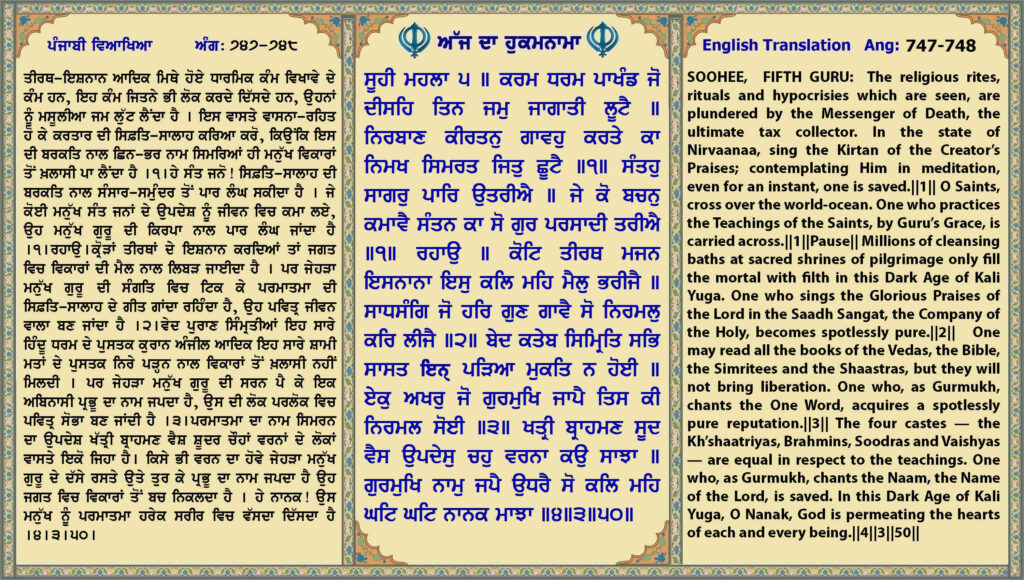 ਪੰਜਾਬੀ ਵਿਆਖਿਆ ਅੰਗ: ੭੪੭-੭੪੮
ਤੀਰਥ-ਇਸ਼ਨਾਨ ਆਦਿਕ ਮਿਥੇ ਹੋਏ ਧਾਰਮਿਕ ਕੰਮ ਵਿਖਾਵੇ ਦੇ
ਕੰਮ ਹਨ, ਇਹ ਕੰਮ ਜਿਤਨੇ ਭੀ ਲੋਕ ਕਰਦੇ ਦਿੱਸਦੇ ਹਨ, ਉਹਨਾਂ
ਨੂੰ ਮਸੂਲੀਆ ਜਮ ਲੁੱਟ ਲੈਂਦਾ ਹੈ । ਇਸ ਵਾਸਤੇ ਵਾਸਨਾ-ਰਹਿਤ
ਹੋ ਕੇ ਕਰਤਾਰ ਦੀ ਸਿਫ਼ਤਿ-ਸਾਲਾਹ ਕਰਿਆ ਕਰੋ, ਕਿਉਂਕਿ ਇਸ
ਦੀ ਬਰਕਤਿ ਨਾਲ ਛਿਨ-ਭਰ ਨਾਮ ਸਿਮਰਿਆਂ ਹੀ ਮਨੁੱਖ ਵਿਕਾਰਾਂ
ਤੋਂ ਖ਼ਲਾਸੀ ਪਾ ਲੈਂਦਾ ਹੈ ।੧।ਹੇ ਸੰਤ ਜਨੋ! ਸਿਫ਼ਤਿ-ਸਾਲਾਹ ਦੀ
ਬਰਕਤਿ ਨਾਲ ਸੰਸਾਰ-ਸਮੁੰਦਰ ਤੋਂ ਪਾਰ ਲੰਘ ਸਕੀਦਾ ਹੈ । ਜੇ
ਕੋਈ ਮਨੁੱਖ ਸੰਤ ਜਨਾਂ ਦੇ ਉਪਦੇਸ਼ ਨੂੰ ਜੀਵਨ ਵਿਚ ਕਮਾ ਲਏ,
ਉਹ ਮਨੁੱਖ ਗੁਰੂ ਦੀ ਕਿਰਪਾ ਨਾਲ ਪਾਰ ਲੰਘ ਜਾਂਦਾ ਹੈ
।੧।ਰਹਾਉ।ਕ੍ਰੋੜਾਂ ਤੀਰਥਾਂ ਦੇ ਇਸ਼ਨਾਨ ਕਰਦਿਆਂ ਤਾਂ ਜਗਤ
ਵਿਚ ਵਿਕਾਰਾਂ ਦੀ ਮੈਲ ਨਾਲ ਲਿਬੜ ਜਾਈਦਾ ਹੈ । ਪਰ ਜੇਹੜਾ
ਮਨੁੱਖ ਗੁਰੂ ਦੀ ਸੰਗਤਿ ਵਿਚ ਟਿਕ ਕੇ ਪਰਮਾਤਮਾ ਦੀ
ਸਿਫ਼ਤਿ-ਸਾਲਾਹ ਦੇ ਗੀਤ ਗਾਂਦਾ ਰਹਿੰਦਾ ਹੈ, ਉਹ ਪਵਿਤ੍ਰ ਜੀਵਨ
ਵਾਲਾ ਬਣ ਜਾਂਦਾ ਹੈ ।੨।ਵੇਦ ਪੁਰਾਣ ਸਿੰਮ੍ਰਤੀਆਂ ਇਹ ਸਾਰੇ
ਹਿੰਦੂ ਧਰਮ ਦੇ ਪੁਸਤਕ ਕੁਰਾਨ ਅੰਜੀਲ ਆਦਿਕ ਇਹ ਸਾਰੇ ਸ਼ਾਮੀ
ਮਤਾਂ ਦੇ ਪੁਸਤਕ ਨਿਰੇ ਪੜ੍ਹਨ ਨਾਲ ਵਿਕਾਰਾਂ ਤੋਂ ਖ਼ਲਾਸੀ ਨਹੀਂ
ਮਿਲਦੀ । ਪਰ ਜੇਹੜਾ ਮਨੁੱਖ ਗੁਰੂ ਦੀ ਸਰਨ ਪੈ ਕੇ ਇਕ
ਅਬਿਨਾਸੀ ਪ੍ਰਭੂ ਦਾ ਨਾਮ ਜਪਦਾ ਹੈ, ਉਸ ਦੀ ਲੋਕ ਪਰਲੋਕ ਵਿਚ
ਪਵਿਤ੍ਰ ਸੋਭਾ ਬਣ ਜਾਂਦੀ ਹੈ ।੩।ਪਰਮਾਤਮਾ ਦਾ ਨਾਮ ਸਿਮਰਨ
ਦਾ ਉਪਦੇਸ਼ ਖੱਤ੍ਰੀ ਬ੍ਰਾਹਮਣ ਵੈਸ਼ ਸ਼ੂਦਰ ਚੌਹਾਂ ਵਰਨਾਂ ਦੇ ਲੋਕਾਂ
ਵਾਸਤੇ ਇਕੋ ਜਿਹਾ ਹੈ। ਕਿਸੇ ਭੀ ਵਰਨ ਦਾ ਹੋਵੇ ਜੇਹੜਾ ਮਨੁੱਖ
ਗੁਰੂ ਦੇ ਦੱਸੇ ਰਸਤੇ ਉਤੇ ਤੁਰ ਕੇ ਪ੍ਰਭੂ ਦਾ ਨਾਮ ਜਪਦਾ ਹੈ ਉਹ
ਜਗਤ ਵਿਚ ਵਿਕਾਰਾਂ ਤੋਂ ਬਚ ਨਿਕਲਦਾ ਹੈ । ਹੇ ਨਾਨਕ! ਉਸ
ਮਨੁੱਖ ਨੂੰ ਪਰਮਾਤਮਾ ਹਰੇਕ ਸਰੀਰ ਵਿਚ ਵੱਸਦਾ ਦਿੱਸਦਾ ਹੈ
।੪।੩।੫੦।
ਅੱਜ ਦਾ ਹੁਕਮਨਾਮਾ
ਸੂਹੀ ਮਹਲਾ ੫ ॥ ਕਰਮ ਧਰਮ ਪਾਖੰਡ ਜੋ
ਦੀਸਹਿ ਤਿਨ ਜਮੁ ਜਾਗਾਤੀ ਲੂਟੈ ॥
ਨਿਰਬਾਣ ਕੀਰਤਨੁ ਗਾਵਹੁ ਕਰਤੇ ਕਾ
ਨਿਮਖ ਸਿਮਰਤ ਜਿਤੁ ਛੂਟੈ ॥੧॥ ਸੰਤਹੁ
ਸਾਗਰੁ ਪਾਰਿ ਉਤਰੀਐ ॥ ਜੇ ਕੋ ਬਚਨੁ
ਕਮਾਵੈ ਸੰਤਨ ਕਾ ਸੋ ਗੁਰ ਪਰਸਾਦੀ ਤਰੀਐ
॥੧॥ ਰਹਾਉ ॥ ਕੋਟਿ ਤੀਰਥ ਮਜਨ
ਇਸਨਾਨਾ ਇਸੁ ਕਲਿ ਮਹਿ ਮੈਲੁ ਭਰੀਜੈ ॥
ਸਾਧਸੰਗਿ ਜੋ ਹਰਿ ਗੁਣ ਗਾਵੈ ਸੋ ਨਿਰਮਲੁ
ਕਰਿ ਲੀਜੈ ॥੨॥ ਬੇਦ ਕਤੇਬ ਸਿਮ੍ਰਿਤਿ ਸਭਿ
ਸਾਸਤ ਇਨ੍ ਪੜਿਆ ਮੁਕਤਿ ਨ ਹੋਈ ॥
ਏਕੁ ਅਖਰੁ ਜੋ ਗੁਰਮੁਖਿ ਜਾਪੈ ਤਿਸ ਕੀ
ਨਿਰਮਲ ਸੋਈ ॥੩॥ ਖਤ੍ਰੀ ਬ੍ਰਾਹਮਣ ਸੂਦ
ਵੈਸ ਉਪਦੇਸੁ ਚਹੁ ਵਰਨਾ ਕਉ ਸਾਝਾ ॥
ਗੁਰਮੁਖਿ ਨਾਮੁ ਜਪੈ ਉਧਰੈ ਸੋ ਕਲਿ ਮਹਿ
ਘਟਿ ਘਟਿ ਨਾਨਕ ਮਾਝਾ ॥੪॥੩॥੫੦॥
English Translation Ang: 747-748
SOOHEE, FIFTH GURU: The religious rites,
rituals and hypocrisies which are seen, are
plundered by the Messenger of Death, the
ultimate tax collector. In the state of
Nirvaanaa, sing the Kirtan of the Creator's
Praises; contemplating Him in meditation,
even for an instant, one is saved.||1|| O Saints,
cross over the world-ocean. One who practices
the Teachings of the Saints, by Guru's Grace, is
carried across.||1||Pause|| Millions of cleansing
baths at sacred shrines of pilgrimage only fill
the mortal with filth in this Dark Age of Kali
Yuga. One who sings the Glorious Praises of
the Lord in the Saadh Sangat, the Company of
the Holy, becomes spotlessly pure.||2|| One
may read all the books of the Vedas, the Bible,
the Simritees and the Shaastras, but they will
not bring liberation. One who, as Gurmukh,
chants the One Word, acquires a spotlessly
pure reputation.||3|| The four castes — the
Kh'shaatriyas, Brahmins, Soodras and Vaishyas
— are equal in respect to the teachings. One
who, as Gurmukh, chants the Naam, the Name
of the Lord, is saved. In this Dark Age of Kali
Yuga, O Nanak, God is permeating the hearts
of each and every being.||4||3||50||